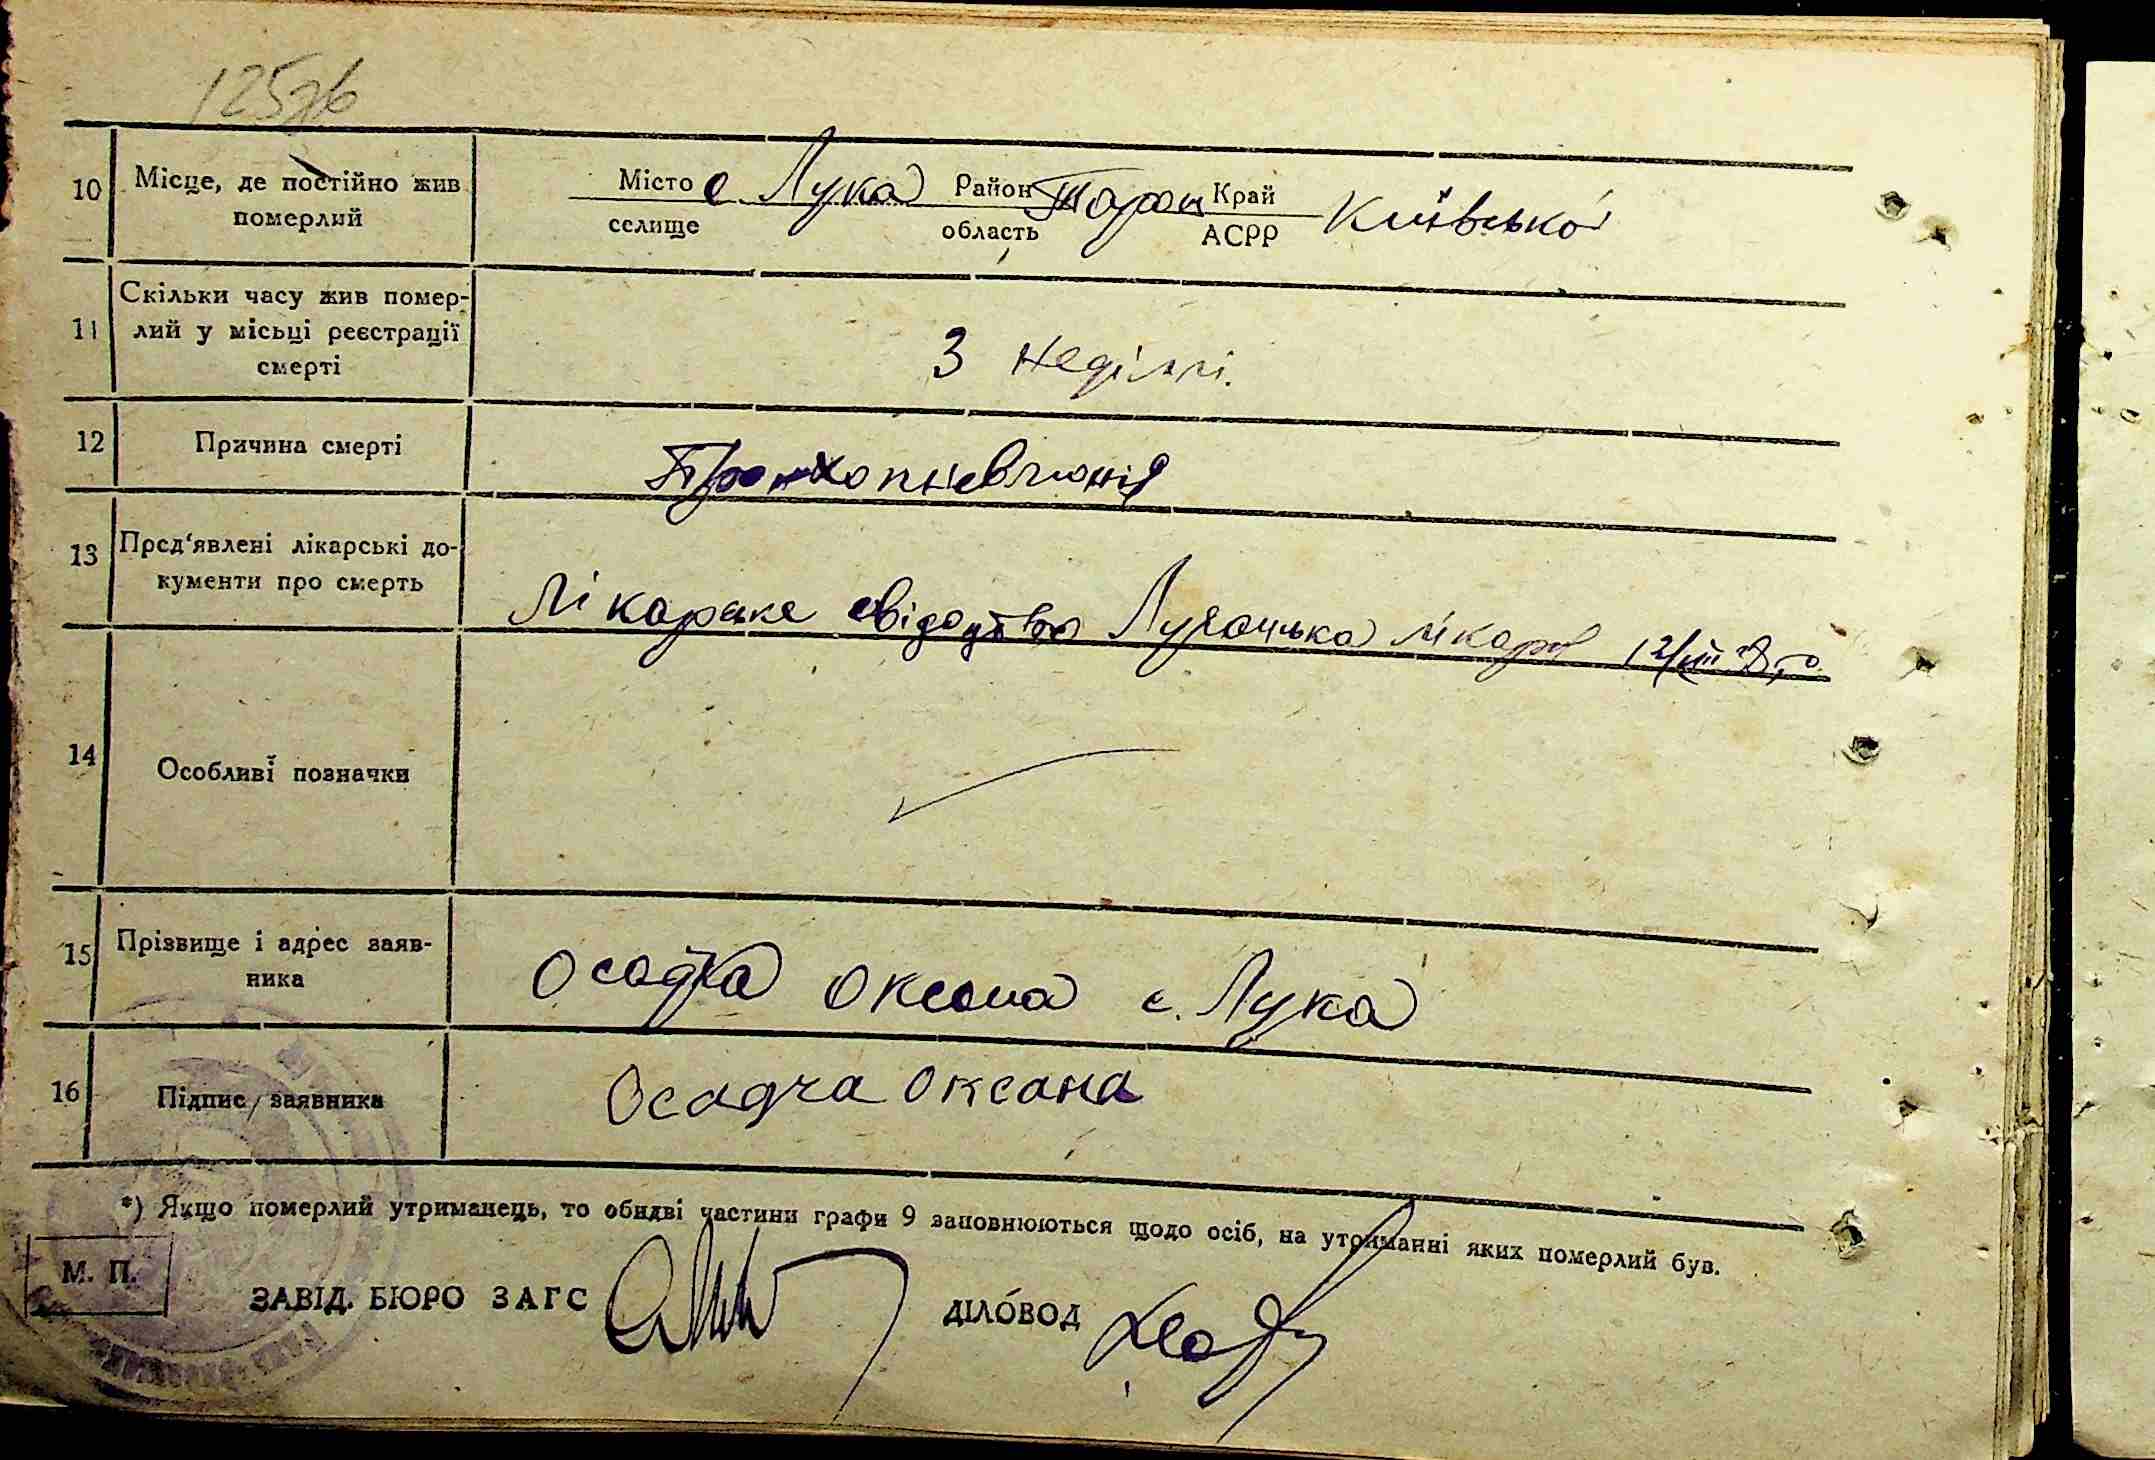 125зв
10 Місце, де постійно жив померлий
Місто с Лука Район Таращ Край Київсько
селище область АСРР
11 Скільки часу жив помер-
лий у місьці реєстрації
смерті
3 неділлі.
12 Причина смерті
Бронхопневмонія
13 Пред'явлені лікарські до-
кументи про смерть
Лікарске свідоцтво Лучанська лікарО 12/III
14 Особливі позначки
15 Прізвище і адрес заяв-
ника
Осадча Оксана с. Лука
16 Підпис заявника
Осадча Оксана
*) Якщо померлий утриманець, то обидві частини графи 9 заповнюються щодо осіб, на утриманні яких померлий був.
М. П.
ЗАВІД. БЮРО ЗАГС ДІЛОВОД